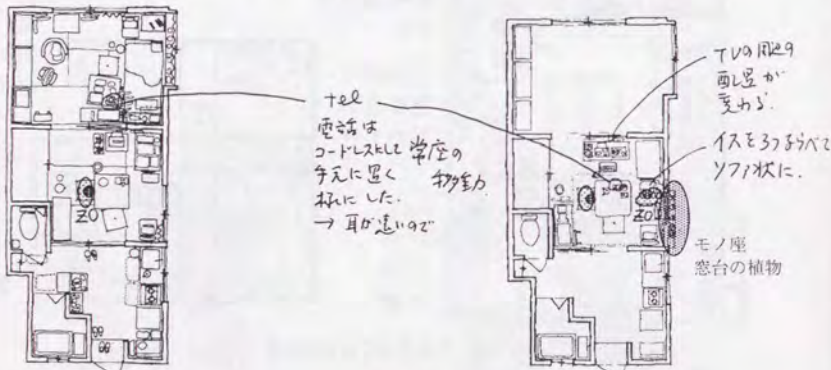 tel
電話は
コードレスにして
手元に置く
様にした.
→ 耳が遠いので
常座の
移動
TVの周辺の
配置が
変わる.
イスを3つならべて
ソファ状に.
モノ座
窓台の植物
ZO
ZO